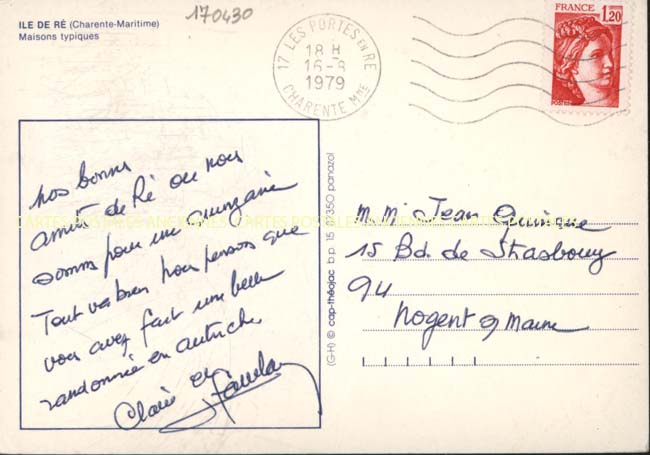 170430
ILE DE RÉ (Charente-Maritime)
Maisons typiques
17 LES PORTES EN RE
18 H
16-8
1979
CHARENTE MME
FRANCE
1,20
nos bonnes
amitiés de Ré ou nous
sommes pour une quinzaine
Tout va bien nous pensons que
vous avez fait une belle
randonnée en autriche.
Claire et
CARTES POSTALES ANCIENNES CARTES POSTALES ANCIENNES CARTES POSTALES ANCIENNES
(G-H) © cap-théojac b.p. 15 87350 panazol
m. m. Jean
15 Bd. de Strasbourg
94
Nogent s/ Marne